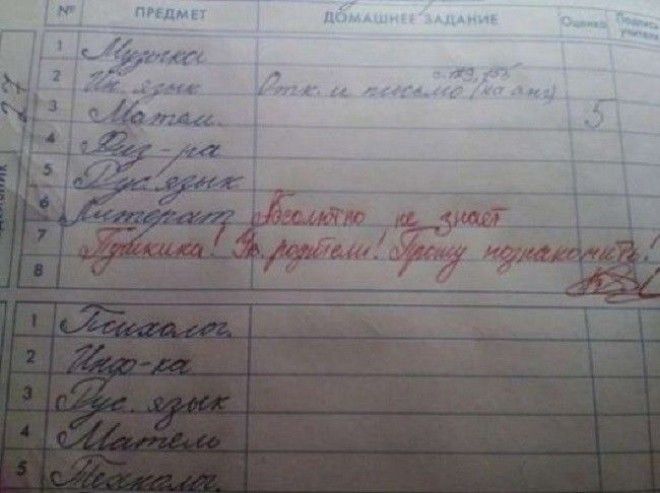 № ПРЕДМЕТ ДОМАШНЕЕ ЗАДАНИЕ Оценка Подпись учителя
27
1 Музыка
2 Ин. язык Отк. и письмо (на анг)
3 Матем. 5
4 Физ-ра
5 Рус. язык
6 Литерат Абсолютно не знает
7 Пушкина! Ув. родители! Прошу познакомить!
8
1 Психолог.
2 Инф-ка
3 Рус. язык
4 Матем
5 Технолог.